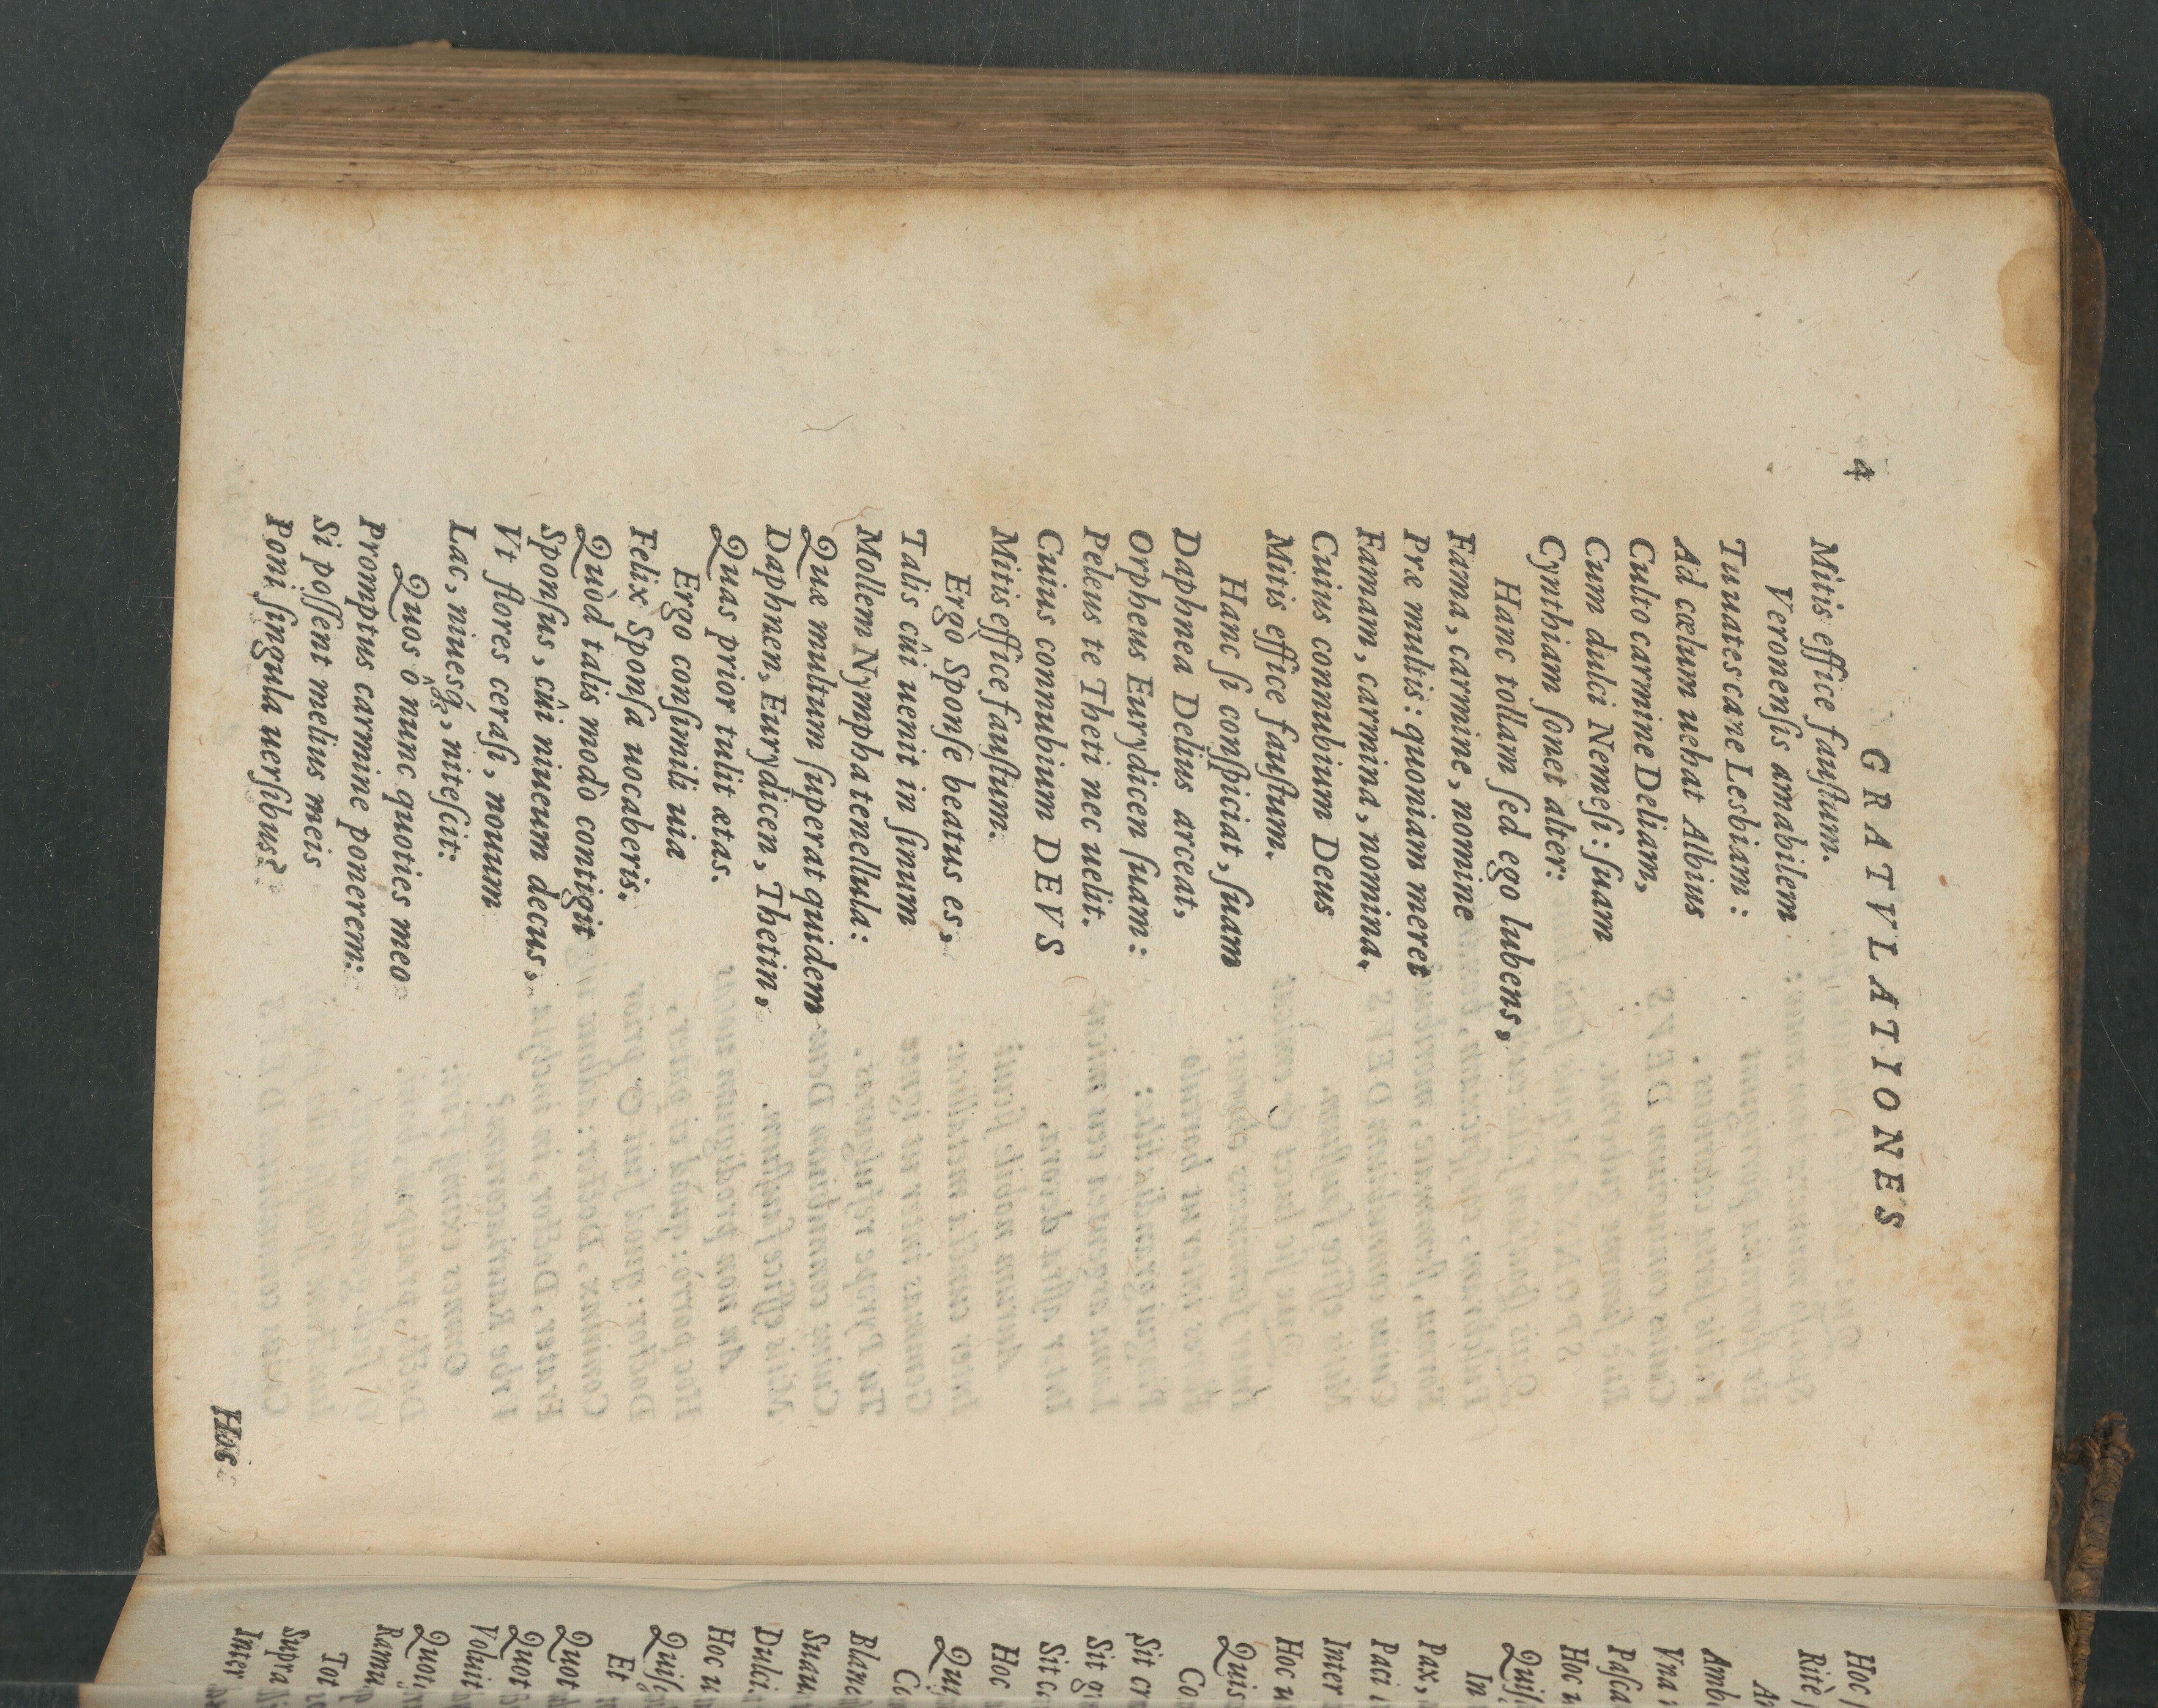 4 GRATVLATIONES
Mitis effice fauſtum.
Veronenſis amabilem
Tu uates cane Lesbiam:
Ad cœlum uehat Albius
Culto carmine Deliam,
Cum dulci Nemeſi: ſuam
Cynthiam ſonet alter:
Hanc tollam ſed ego lubens,
Fama, carmine, nomine
Præ multis: quoniam meret
Famam, carmina, nomina.
Cuius connubium Deus
Mitis effice fauſtum.
Hanc ſi conſpiciat, ſuam
Daphnea Delius arceat,
Orpheus Eurydicen ſuam:
Peleus te Theti nec uelit.
Cuius connubium DEVS
Mitis effice fauſtum.
Ergò Sponſe beatus es,
Talis cûi uenit in ſinum
Mollem Nympha tenellula:
Quæ multum ſuperat quidem
Daphnen, Eurydicen, Thetin,
Quas prior tulit ætas.
Ergo conſimili uia
Felix Sponſa uocaberis.
Quòd talis modò contigit
Sponſus, cûi niueum decus,
Vt flores ceraſi, nouum
Lac, niuesq́;, niteſcit:
Quos ô nunc quoties meo
Promptus carmine ponerem:
Si poſſent melius meis
Poni ſingula uerſibus?
Hos
Hoc
Ritè
Amb
Vna
Paſca
Hoc u
Quiſ
In
Pax,
Paci
Inter
Hoc u
Quis
Co
Sit cr
Sit g
Sit c
Hoc
Co
Blan
Suau
Dulci
Hoc u
Quiſ
Et
Quot
Quot
Voluit
Quot
Ramu
Tot
Supra
Inter